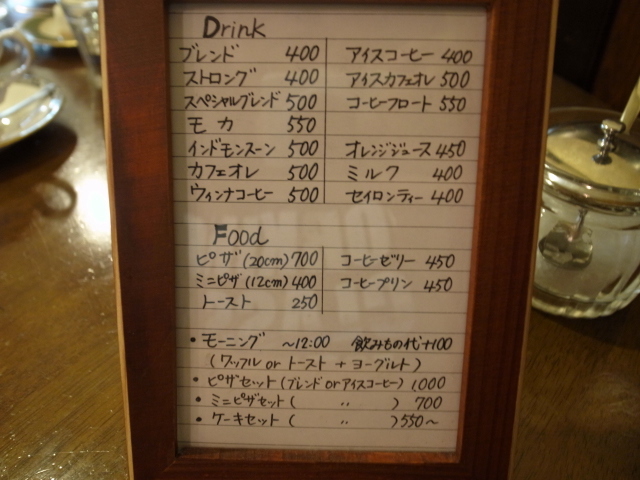 Drink
ブレンド 400 アイスコーヒー 400
ストロング 400 アイスカフェオレ 500
スペシャルブレンド 500 コーヒーフロート 550
モカ 550
インドモンスーン 500 オレンジジュース 450
カフェオレ 500 ミルク 400
ウィンナコーヒー 500 セイロンティー 400
Food
ピザ (20cm) 700 コーヒーゼリー 450
ミニピザ (12cm) 400 コーヒープリン 450
トースト 250
• モーニング ~12:00 飲みもの代+100
(ワッフル or トースト + ヨーグルト)
• ピザセット (ブレンド or アイスコーヒー) 1,000
• ミニピザセット ( 〃 ) 700
• ケーキセット ( 〃 ) 550~